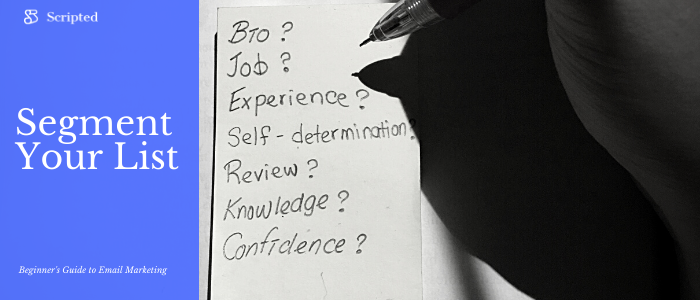 Scripted
Segment
Your List
Beginner's Guide to Email Marketing
Bio ?
Job ?
Experience ?
Self - determination?
Review ?
Knowledge ?
Confidence ?